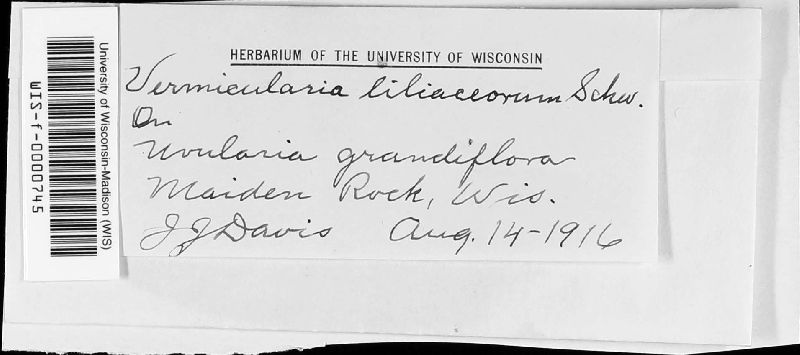 HERBARIUM OF THE UNIVERSITY OF WISCONSIN
Vermicularia liliaceorum Schw.
On
Uvularia grandiflora
Maiden Rock, Wis.
J J Davis Aug. 14-1916
University of Wisconsin-Madison (WIS)
WIS-f-0000745